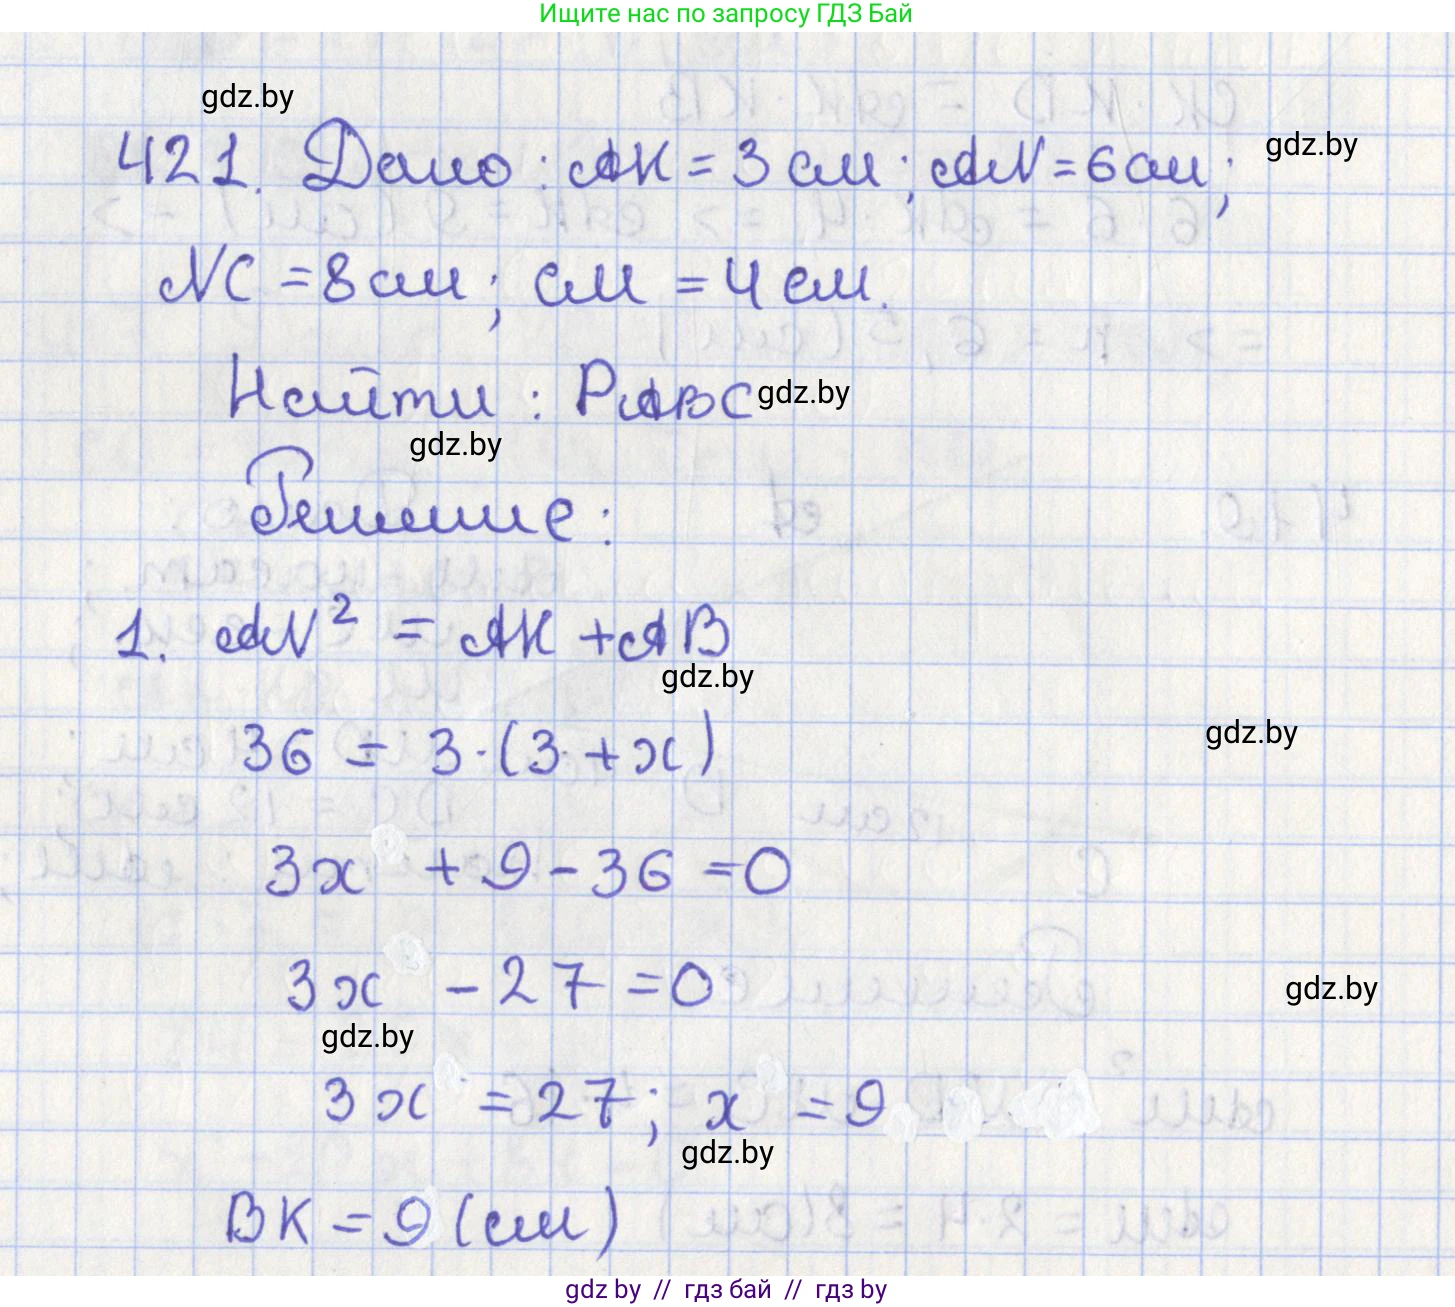 Ищите нас по запросу ГДЗ Бай
gdz.by
421. Дано: AK = 3 см; AN = 6 см;
gdz.by
NC = 8 см; CM = 4 см.
Найти: PABC
gdz.by
gdz.by
Решение:
1. AN² = AK + AB
gdz.by
36 = 3·(3 + x)
gdz.by
3x + 9 - 36 = 0
3x - 27 = 0
gdz.by
gdz.by
3x = 27; x = 9
gdz.by
BK = 9 (см)
gdz by // гдз бай // гдз by